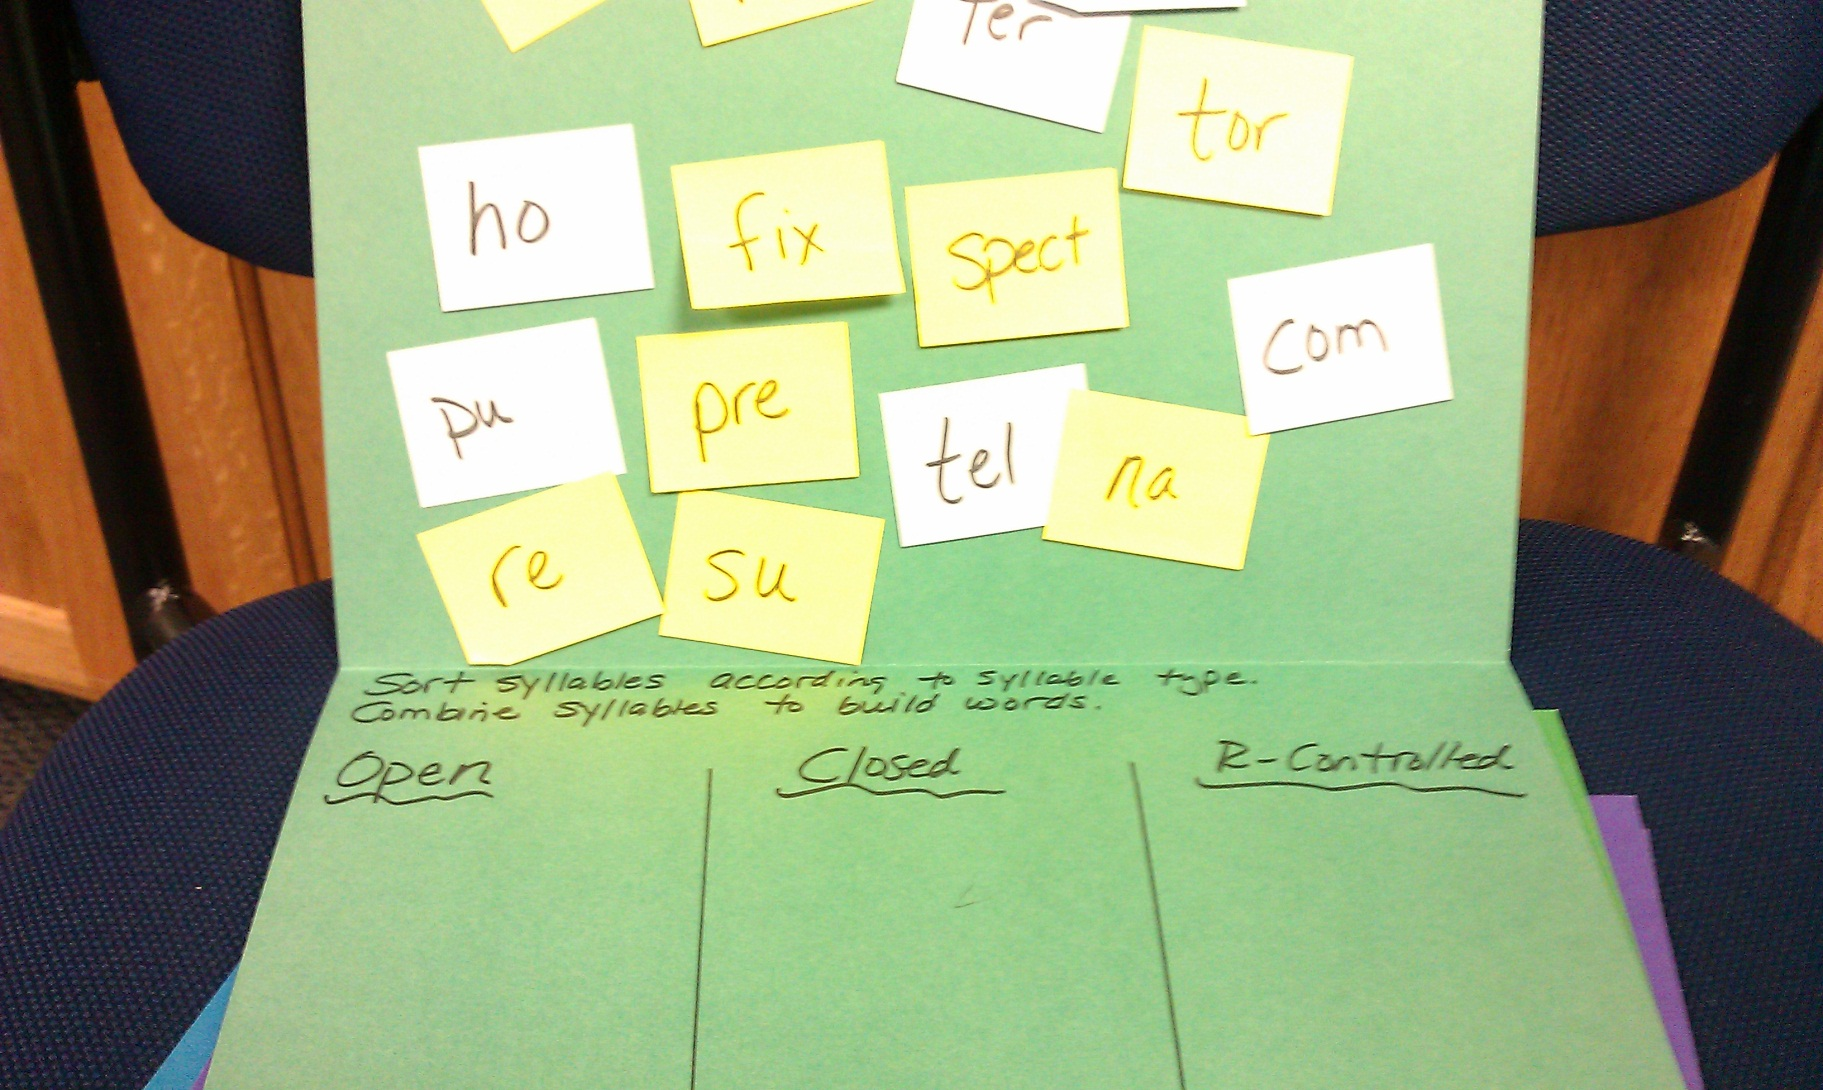 ter
tor
ho
fix
spect
com
pu
pre
tel
na
re
su
Sort syllables according to syllable type.
Combine syllables to build words.
Open
Closed
R-Controlled